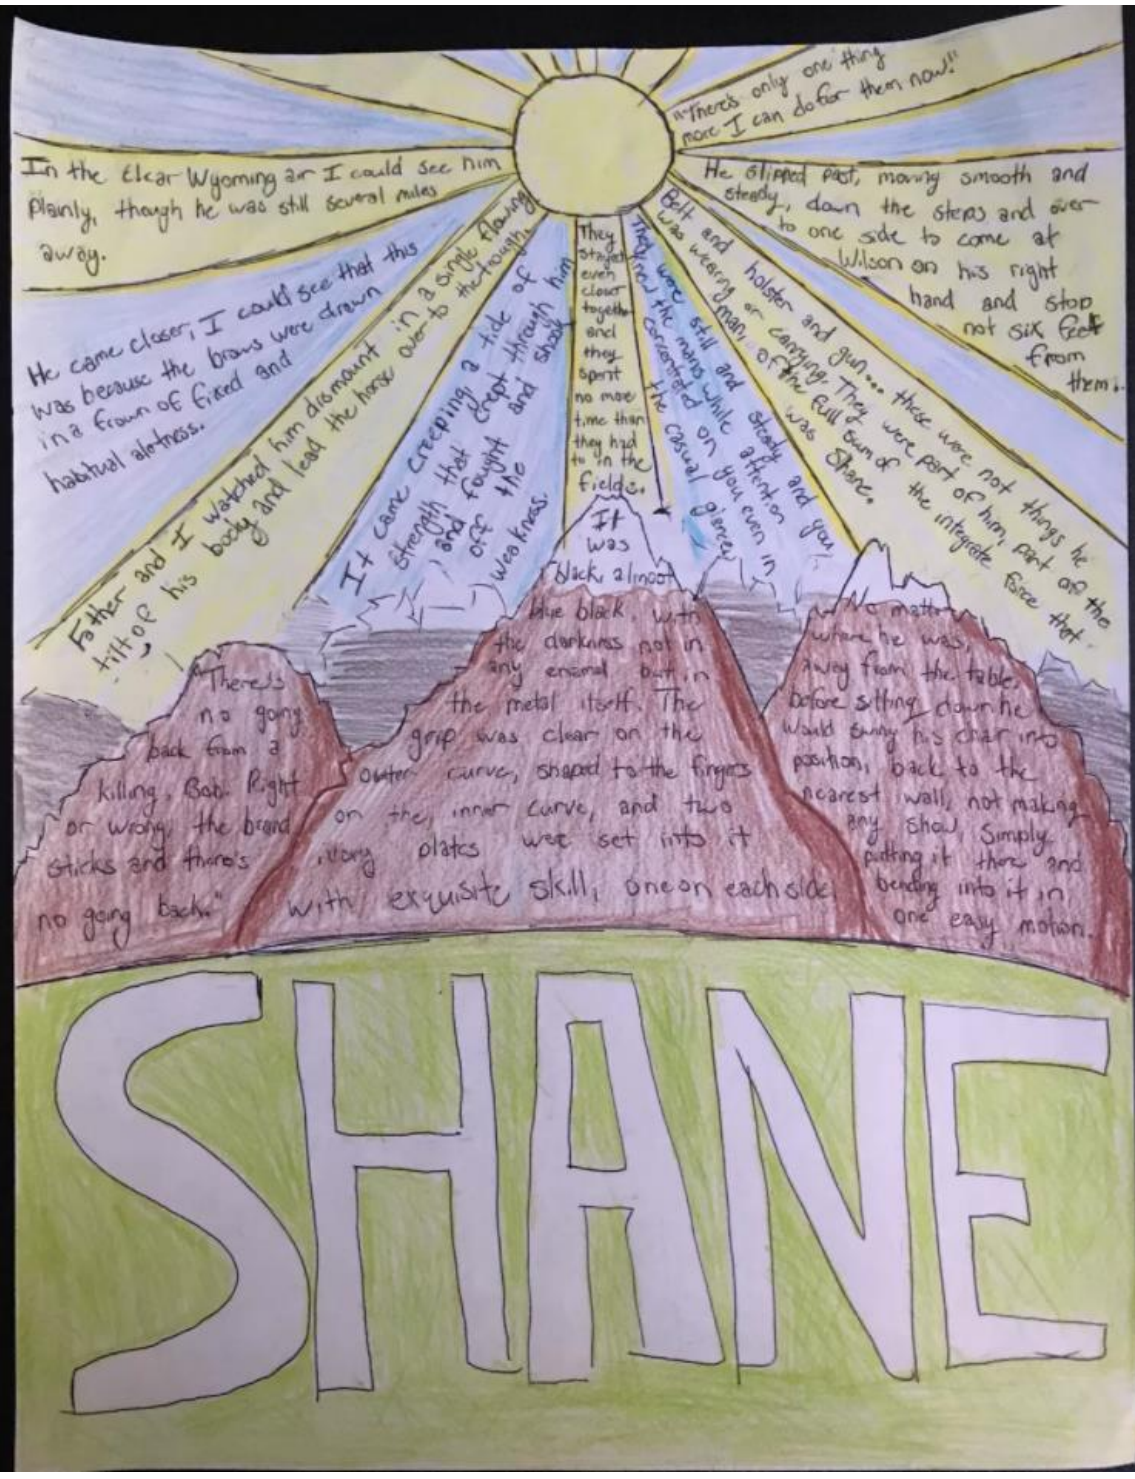 In the clear Wyoming air I could see him
plainly, though he was still several miles
away.
He came closer, I could see that this
was because the brows were drawn
in a frown of fixed and
habitual alertness.
Father and I watched him dismount in a single flowing
tilt of his body and lead the horse over to the trough.
It came creeping, a tide of
strength that crept through him
and fought and shook
off the
weakness.
They
stayed
even
closer
together
and
they
spent
no more
time than
they had
to in the
fields.
They were still and steady and you
knew the man's while attention
concentrated on you even in
the casual glance
Belt and holster and gun... these were not things he
was wearing or carrying. They were part of him, part of the
man, of the full sum of the integrate force that
was Shane.
He slipped past, moving smooth and
steady, down the steps and over
to one side to come at
Wilson on his right
hand and stop
not six feet
from
them.
"There's only one thing
more I can do for them now!"
"There's
no going
back from a
killing, Bob. Right
or wrong, the brand
sticks and there's
no going back."
It
was
black, almost
blue black, with
the darkness not in
any enamel but in
the metal itself. The
grip was clear on the
outer curve, shaped to the fingers
on the inner curve, and two
ivory plates were set into it
with exquisite skill, one on each side.
No matter
where he was,
away from the table,
before sitting down he
would swing his chair into
position, back to the
nearest wall, not making
any show, simply
putting it there and
bending into it in
one easy motion.
SHANE